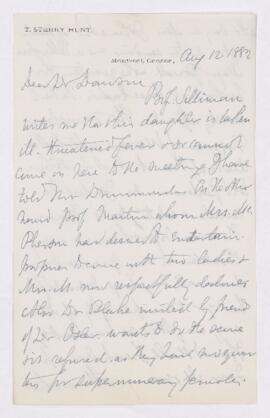 T. STERRY HUNT.
Montreal, Canada, Aug 12 1882
Dear Dr Dawson
Prof. Silliman
writes me that his daughter is taken
ill. threatened fever & so cannot
come in here to the meeting. I have
told Mrs Drummond. On the other
hand Prof Martin whom Mrs. Mc
Pherson had desired to entertain
proposes to come with two ladies &
Mrs. M. now respectfully declines
Also Dr Blake invited by friend
of Dr Osler wants to do the same
& is refused as they have no quar
ters for supernumerary females.